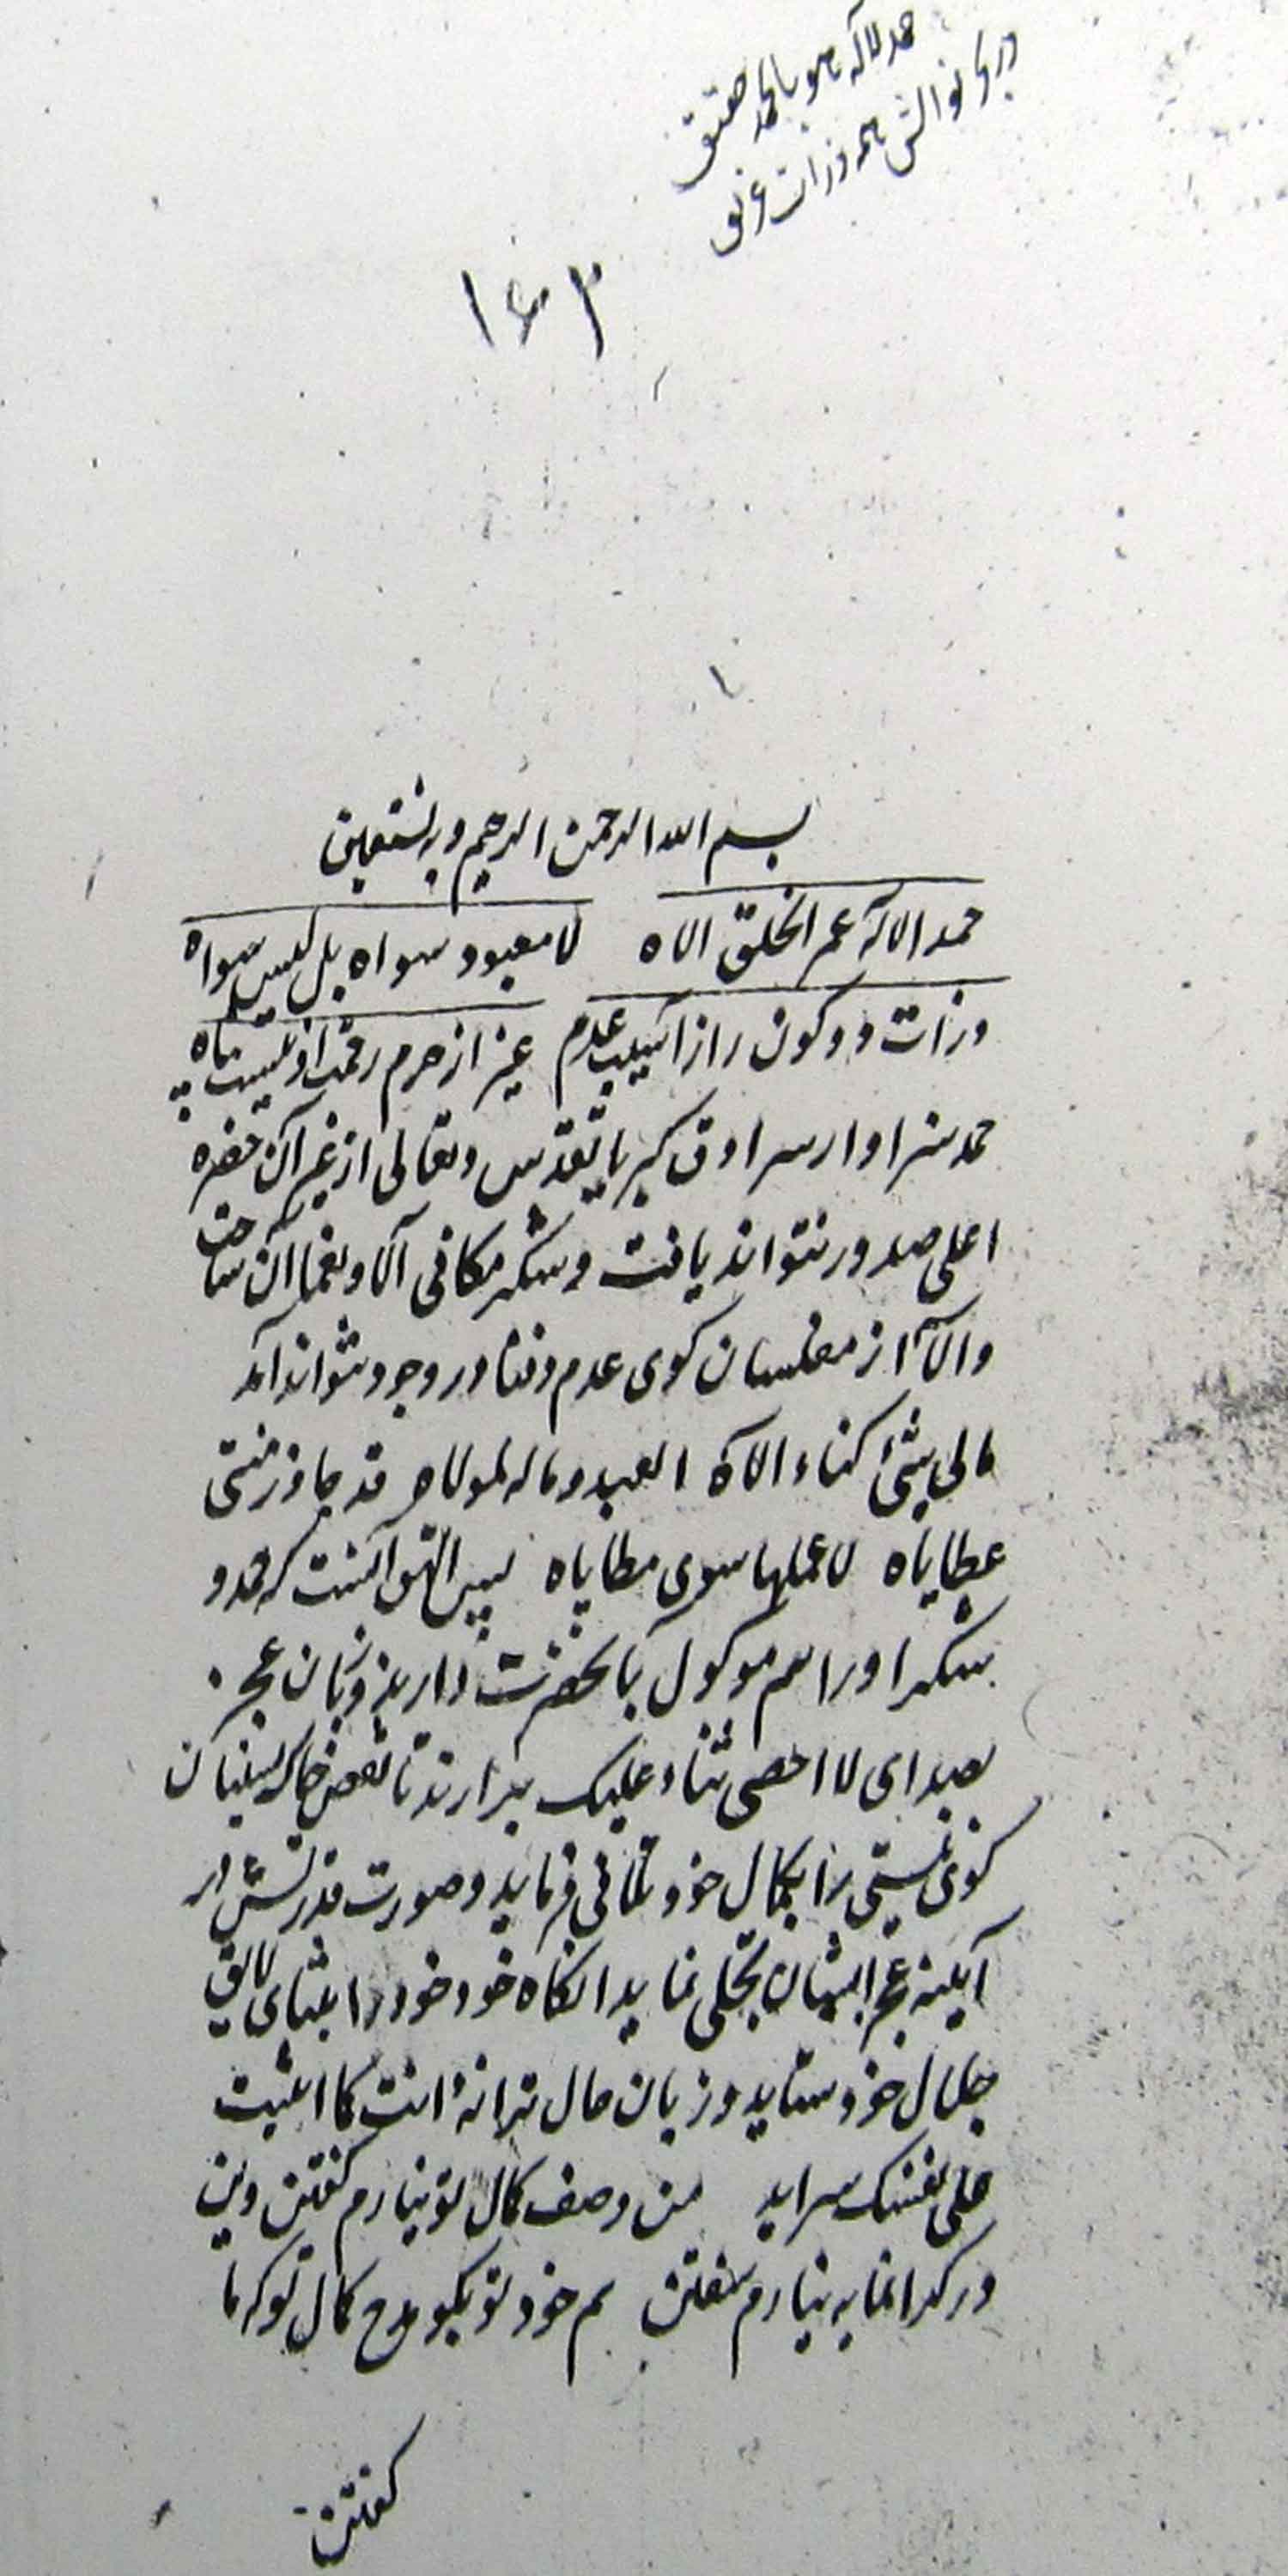 حمد لاله هو بالحمد حقیق
در بحر نوالش همه ذرات غریق
۱۶۳
بسم الله الرحمن الرحیم وبه نستعین
حمد الاله عم الخلق الاه لا معبود سواه بل لیس سواه
ذرات دو کون را از آسیب عدم غیر از حرم رحمت او نیست پناه
حمد سزاوار سرادق کبریا تقدس وتعالی از غیر آن حضره
اعلی صدور نتواند یافت و شکر مکافی آلا و نعماء آن ساحت
والا از مفلسان کوی عدم و فنا در وجود نتواند آمد
مالی شئ کفاء الاه العبد وماله لمولاه قد جاوز منتی
عطایاه لا عملها سوی مطایاه پس الیق آنست که حمد و
شکر او را هم موکول بآنحضرت دارند و زبان عجز
بصدای لا احصی ثناء علیک برارند تا نقص خاک نشینان
کوی نیستی را بکمال خود تلافی فرماید و صورت قدرتش در
آیینه عجز ایشان تجلی نماید انکاه خود خود را بثنای لایق
جلال خود ستاید و زبان حال ترانه انت کما اثنیت
علی نفسک سراید من وصف کمال تو نیارم گفتن وین
در گرانمایه نیارم سفتن هم خود تو بگو مدح کمال تو که ما
گفتن